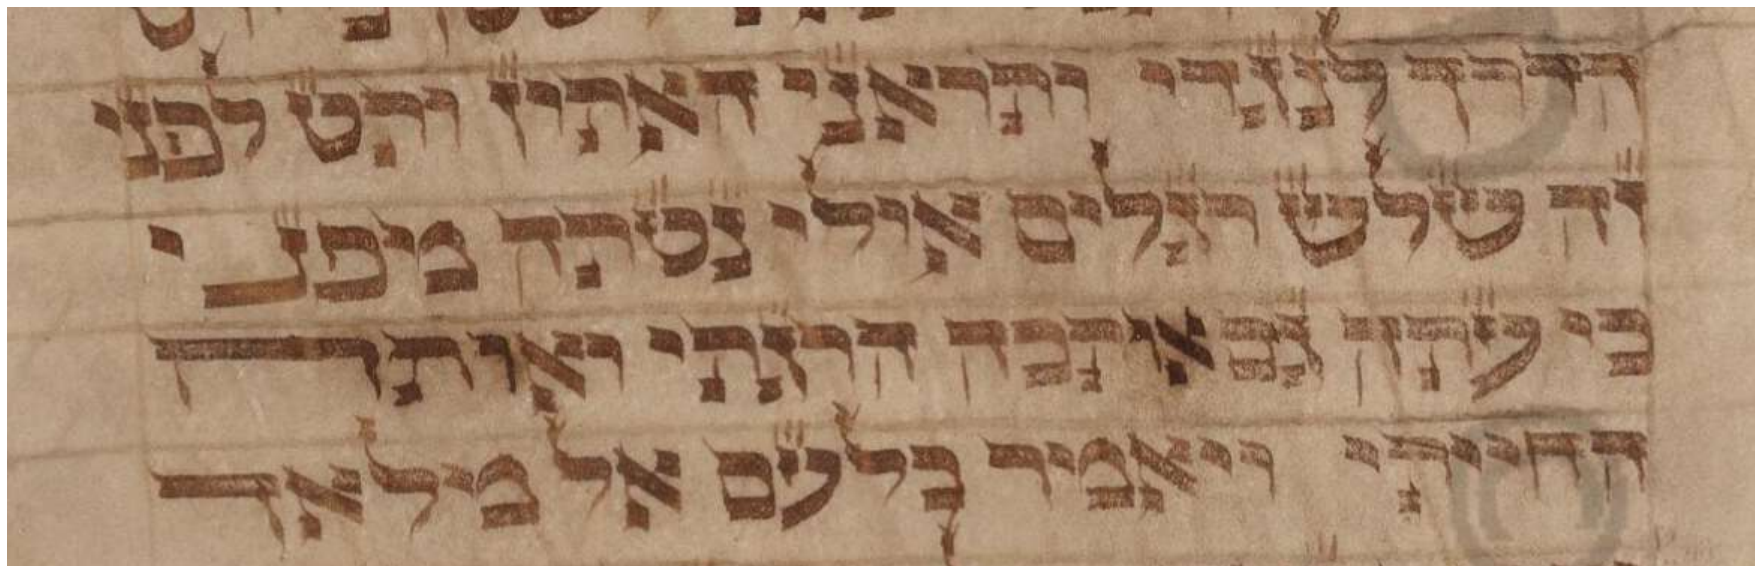 הדרך לנגדי ותראני האתון ותט לפני
זה שלש רגלים אולי נטתה מפני
כי עתה גם אתכה הרגתי ואותה
החייתי ויאמר בלעם אל מלאך